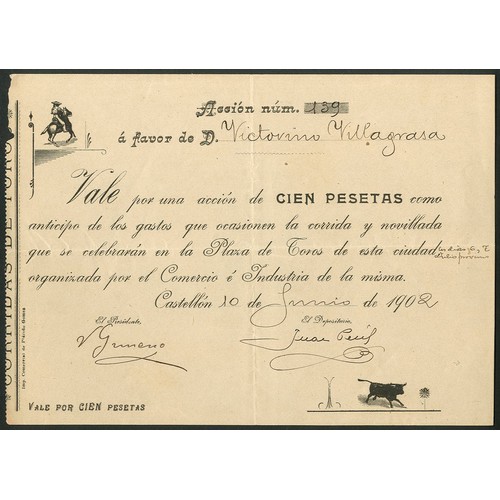 Acción núm. 139
á favor de D. Victorino Villagrasa
Vale por una acción de CIEN PESETAS como
anticipo de los gastos que ocasionen la corrida y novillada
que se celebrarán en la Plaza de Toros de esta ciudad
organizada por el Comercio é Industria de la misma.
Castellón 10 de Junio de 1902
El Presidente,
El Depositario,
Juan
VALE POR CIEN PESETAS
CORRIDAS DE TORO